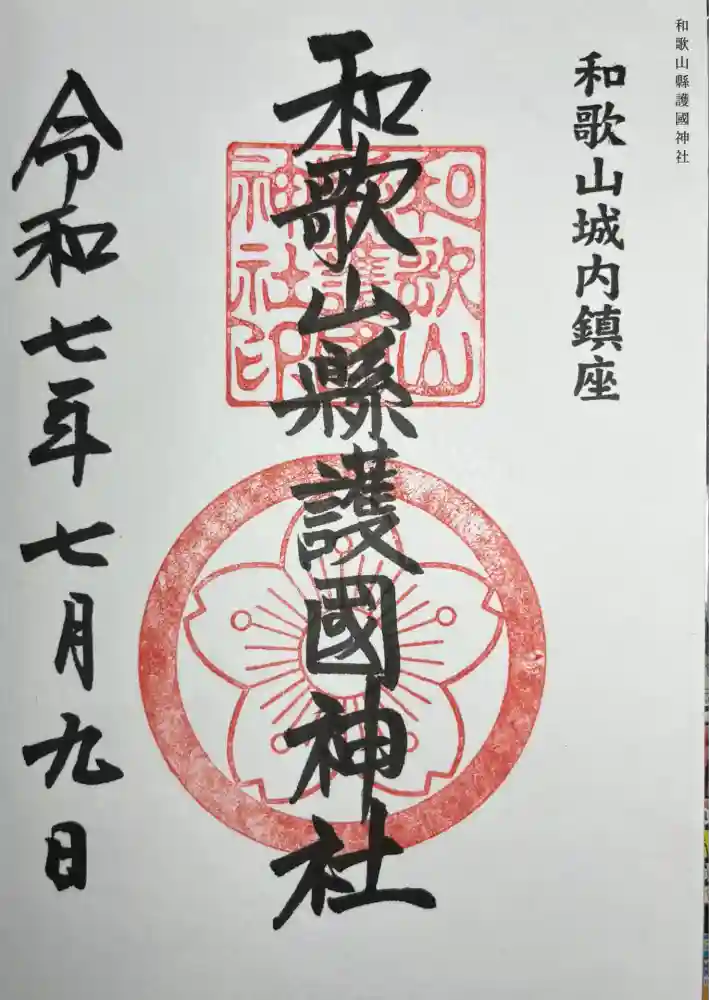 和歌山縣護國神社
和歌山城内鎮座
和歌山縣護國神社
和歌山
縣護國
神社印
令和七年七月九日